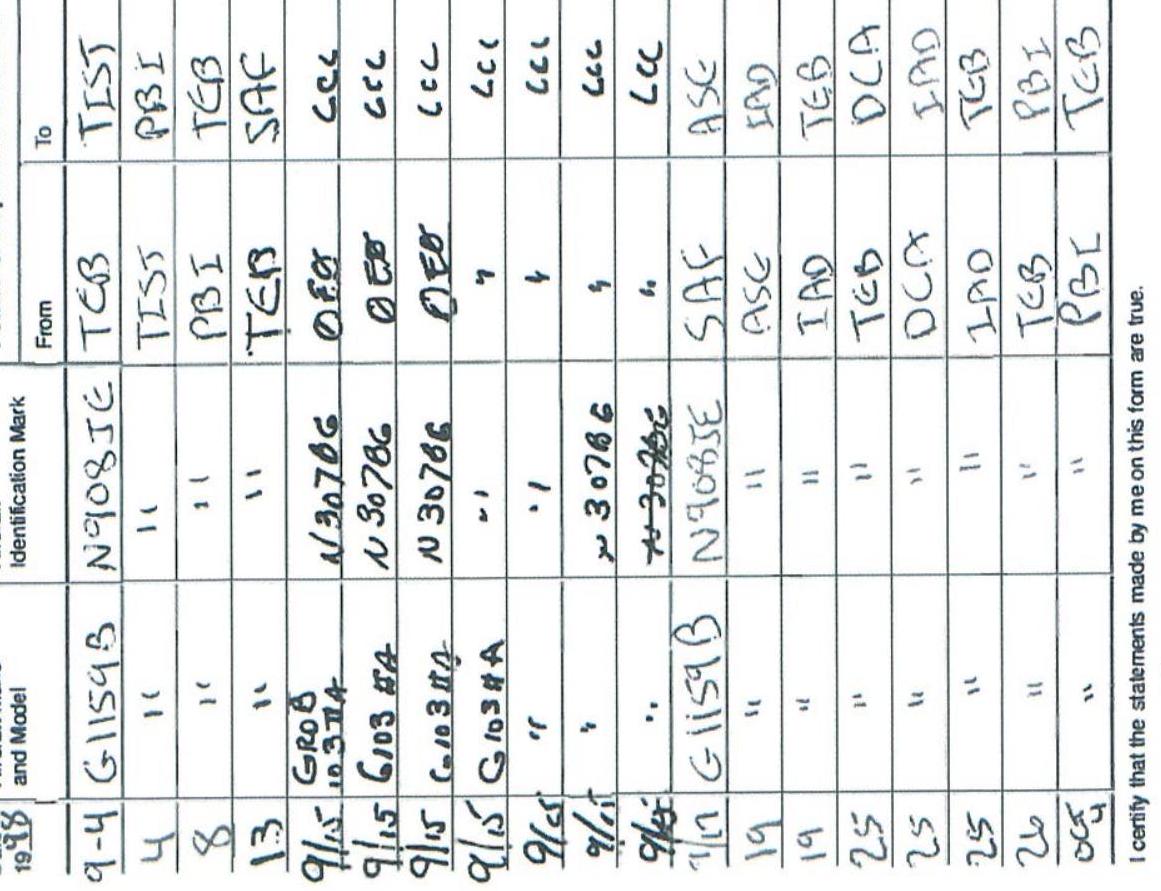 1998 and Model Identification Mark From To
9-4 G1159B N908JE TEB TIST
4 " " TIST PBI
8 " " PBI TEB
13 " " TEB SAF
9/15 GROB 103 IIA N307BG 0E0 LCC
9/15 G103 IIA N307BG 0E0 LCC
9/15 G103 IIA N307BG 0E0 LCC
9/15 G103 IIA " " LCC
9/15 " " " LCC
9/15 " N307BG " LCC
9/15 " N307BG " LCC
9/17 G1159B N908JE SAF ASE
19 " " ASE IAD
19 " " IAD TEB
25 " " TEB DCA
25 " " DCA IAD
25 " " IAD TEB
26 " " TEB PBI
OCT 4 " " PBI TEB
I certify that the statements made by me on this form are true.